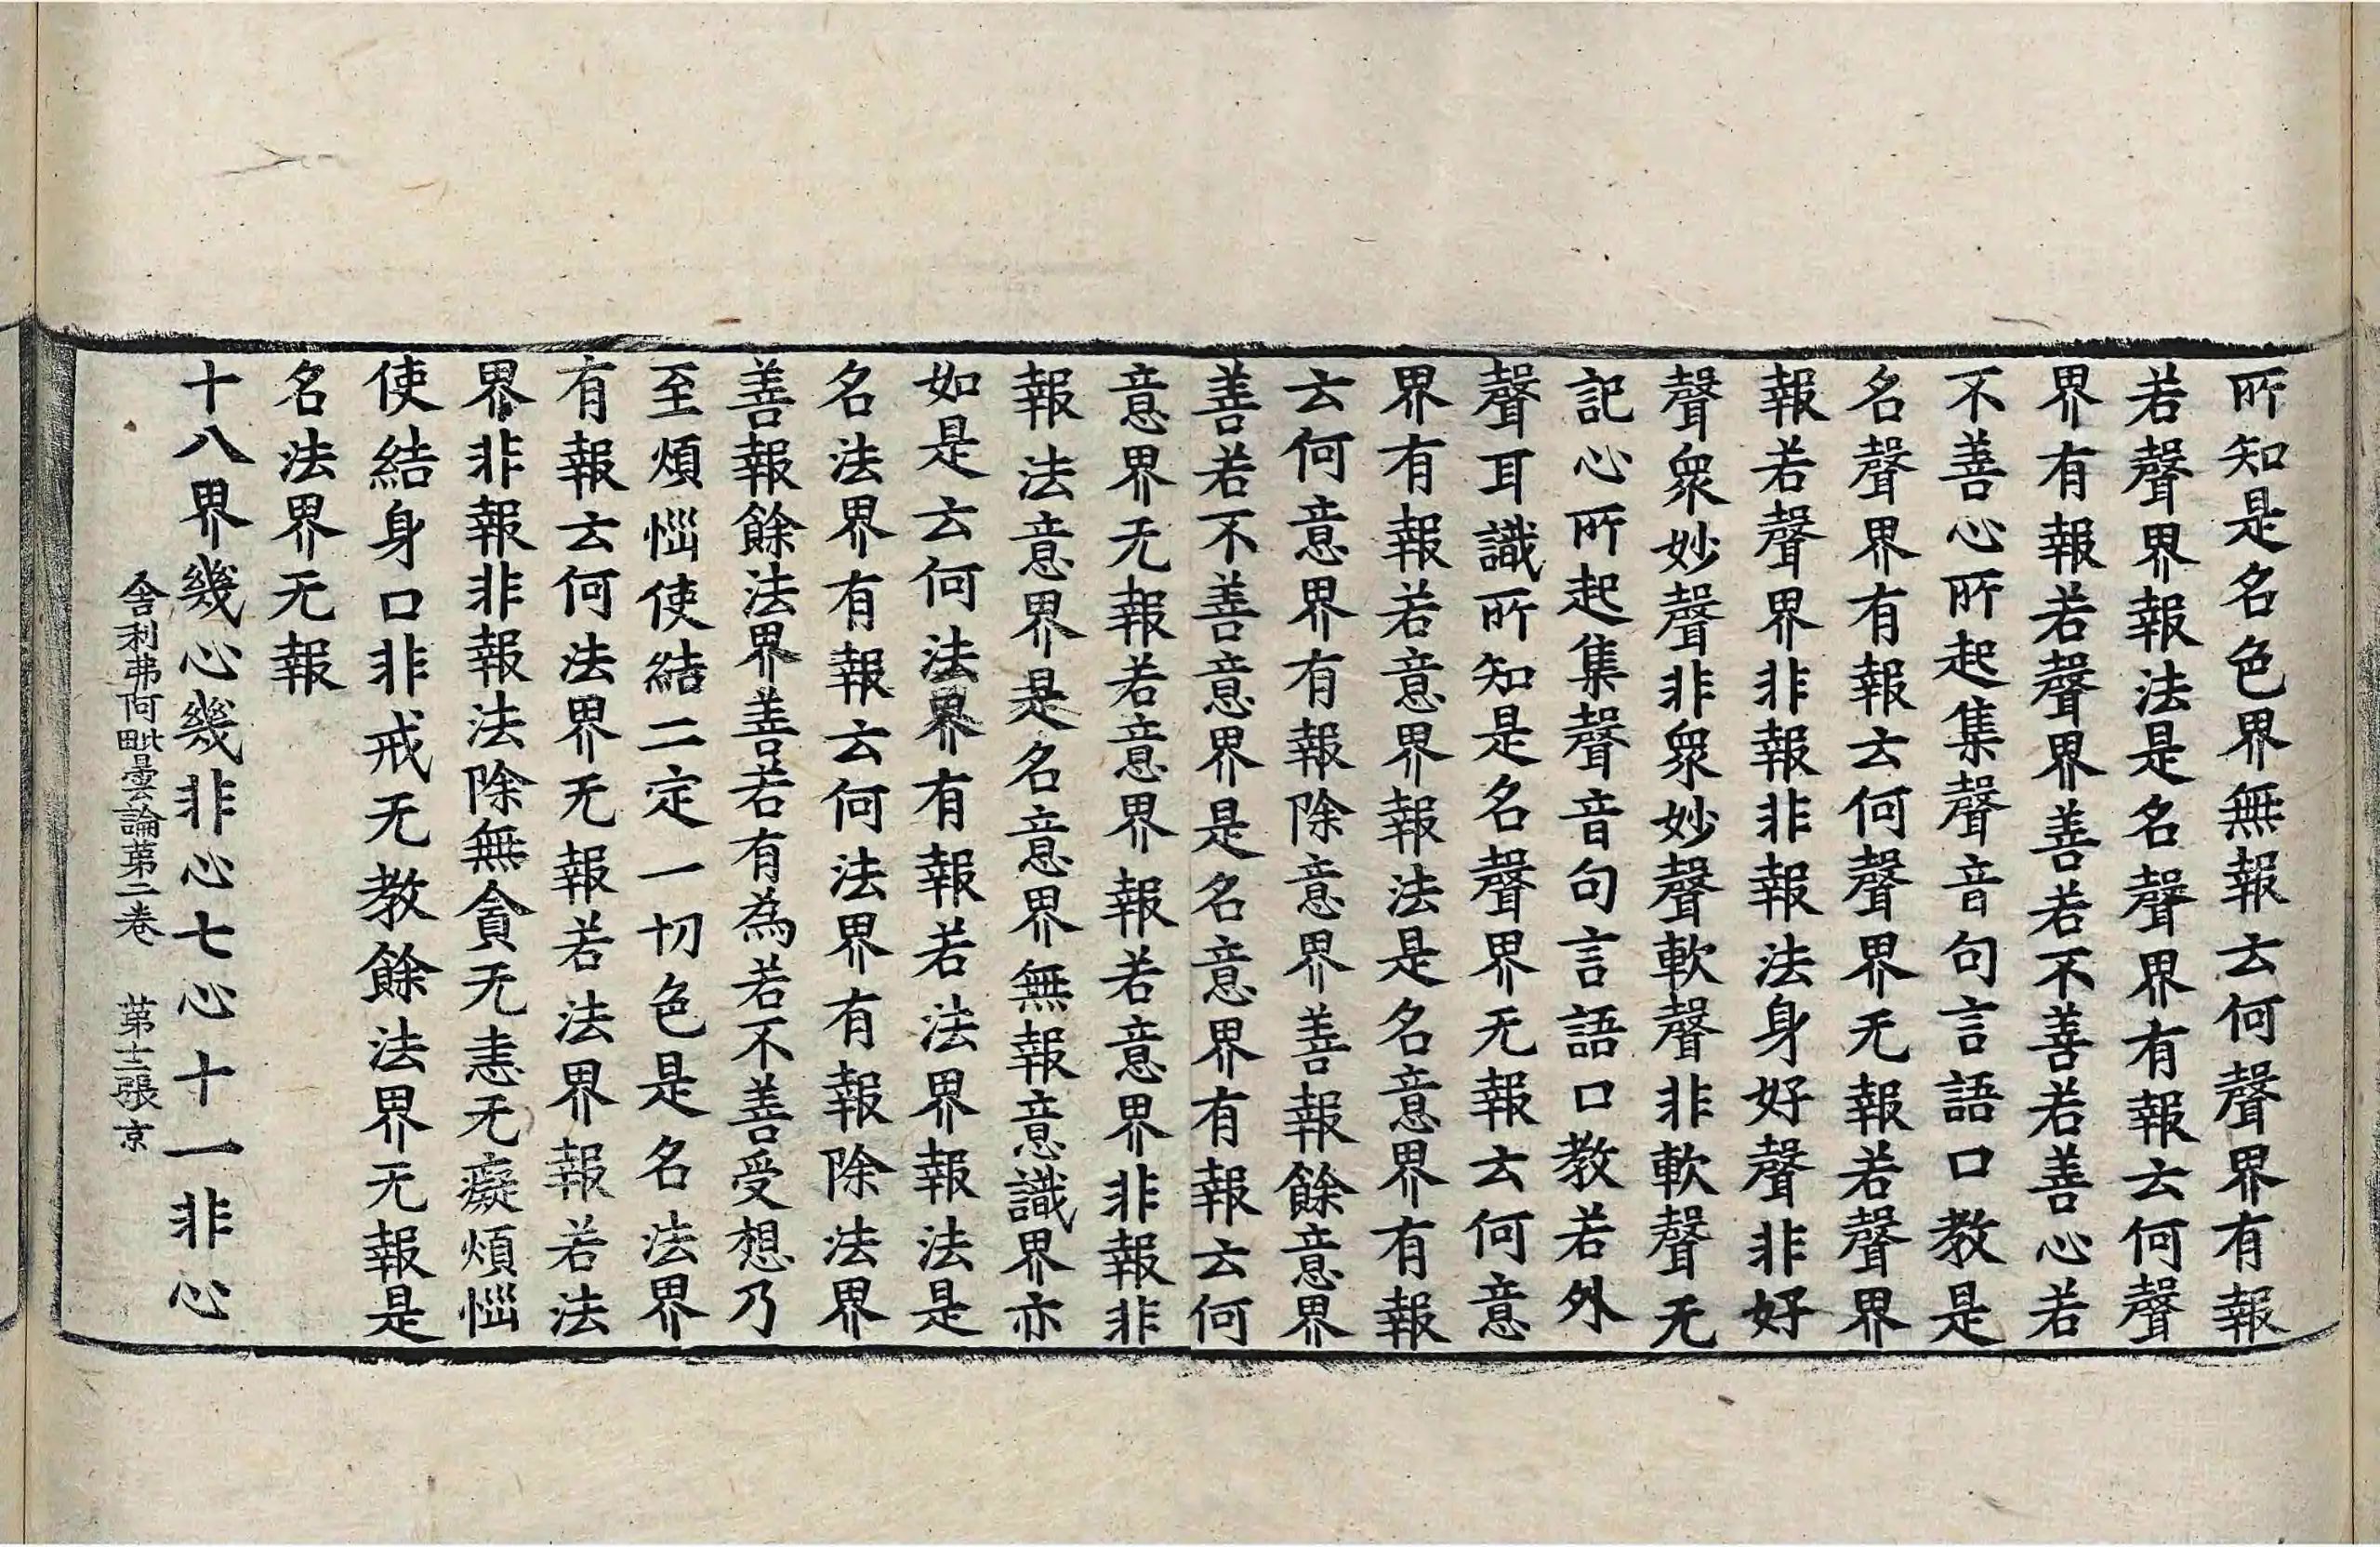 所知是名色界無報云何聲界有報
若聲界報法是名聲界有報云何聲
界有報若聲界善若不善若善心若
不善心所起集聲音句言語口教是
名聲界有報云何聲界无報若聲界
報若聲界非報非報法身好聲非好
聲衆妙聲非衆妙聲軟聲非軟聲无
記心所起集聲音句言語口教若外
聲耳識所知是名聲界无報云何意
界有報若意界報法是名意界有報
云何意界有報除意界善報餘意界
善若不善意界是名意界有報云何
意界无報若意界報若意界非報非
報法意界是名意界無報意識界亦
如是云何法界有報若法界報法是
名法界有報云何法界有報除法界
善報餘法界善若有為若不善受想乃
至煩惱使結二定一切色是名法界
有報云何法界无報若法界報若法
界非報非報法除無貪无恚无癡煩惱
使結身口非戒无教餘法界无報是
名法界无報
十八界幾心幾非心七心十一非心
舍利弗阿毗曇論第二卷　第十二張京